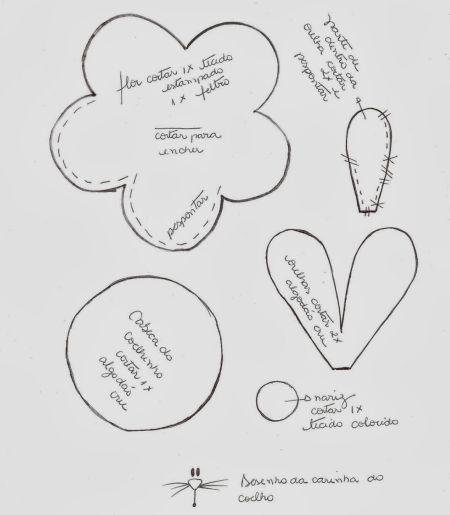 flor cortar 1x tecido
estampado
1x feltro
cortar para
encher
pespontar
parte de
dentro da
orelha cortar
2x e
pespontar
orelhas cortar 2x
algodão cru
Cabeça do
coelhinho
cortar 1x
algodão
cru
nariz
cortar 1x
tecido colorido
Desenho da carinha do
coelho